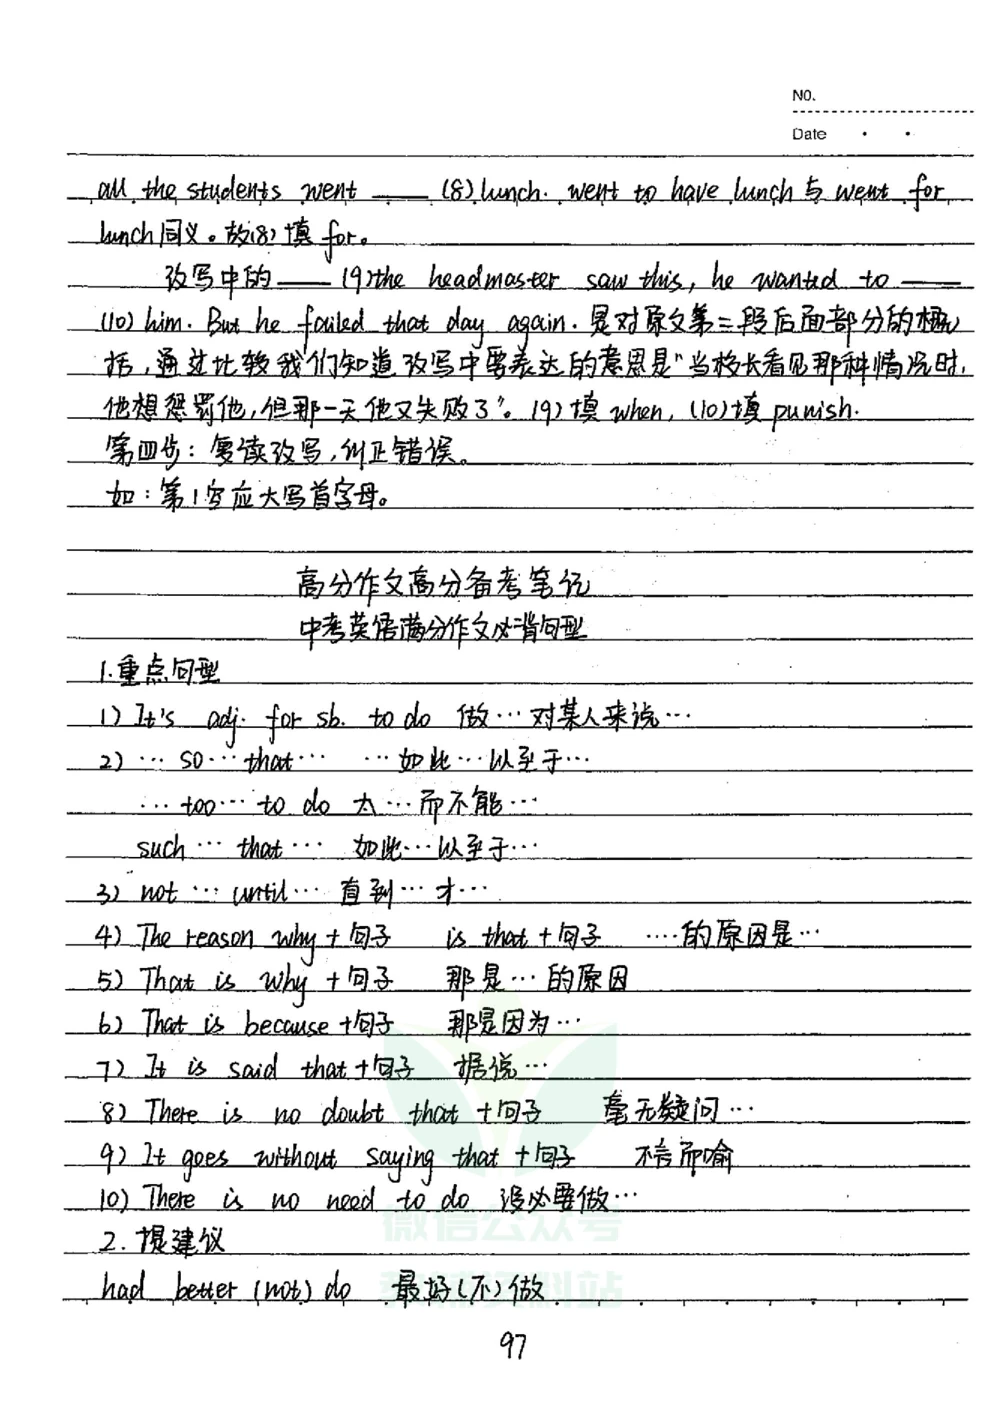 NO.
Date
all the students went ____ (8) lunch. went to have lunch与went for
lunch同义。故(8)填for。
改写中的____(9)the headmaster saw this, he wanted to ____
(10) him. But he failed that day again. 是对原文第三段后面部分的概
括,通过比较我们知道改写中要表达的意思是"当校长看见那种情况时,
他想惩罚他,但那一天他又失败了"。(9)填when, (10)填punish.
第四步:复读改写,纠正错误。
如:第1空应大写首字母。
高分作文高分备考笔记
中考英语满分作文必背句型
1.重点句型
1) It's adj. for sb. to do 做…对某人来说…
2) … so … that … …如此…以至于…
… too … to do 太…而不能…
such … that … 如此…以至于…
3) not … until … 直到…才…
4) The reason why + 句子 is that + 句子 ….的原因是…
5) That is why + 句子 那是…的原因
6) That is because +句子 那是因为…
7) It is said that +句子 据说…
8) There is no doubt that +句子 毫无疑问…
9) It goes without saying that +句子 不言而喻
10) There is no need to do 没必要做…
2.提建议
had better (not) do 最好(不)做
微信公众号
教辅资料站
97